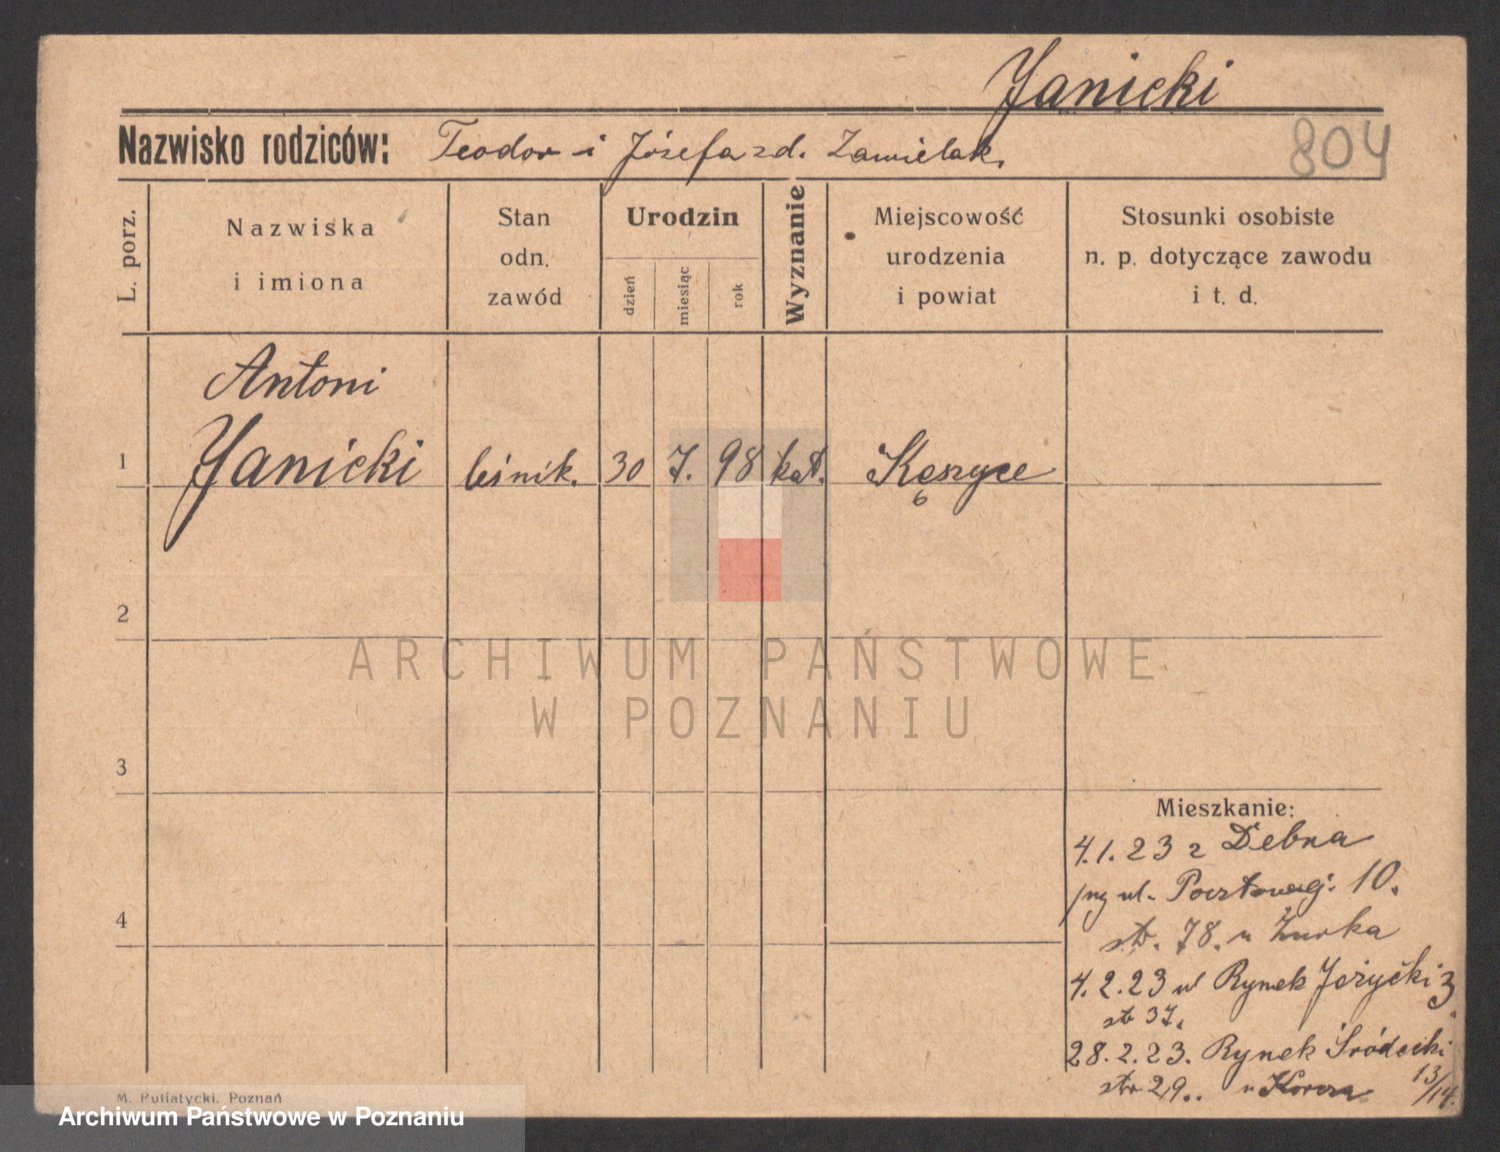 Janicki
Nazwisko rodziców: Teodor i Józefa zd. Zawielak.
804
L. porz.
Nazwiska
i imiona
Stan
odn.
zawód
Urodzin
dzień
miesiąc
rok
Wyznanie
Miejscowość
urodzenia
i powiat
Stosunki osobiste
n. p. dotyczące zawodu
i t. d.
Antoni
1 Janicki leśnik. 30 7. 98 kat. Kęszyce
2
ARCHIWUM PAŃSTWOWE
W POZNANIU
3
4
Mieszkanie:
4.1.23 z Debna
ul. Pocztowej 10.
str. 78. u Żurka
4.2.23 ul Rynek Jeżyčki 3.
str 37.
28.2.23. Rynek Śródecki
13/14.
str 29. u
M. Putiatycki, Poznań
Archiwum Państwowe w Poznaniu